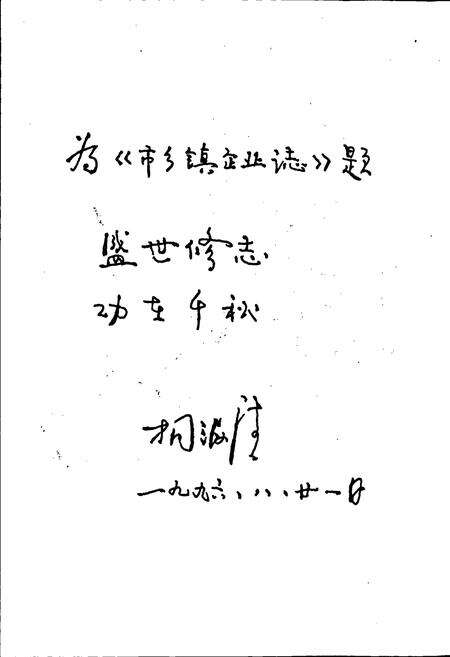 为《市乡镇企业誌》题
盛世修志
功在千秋
一九九六、八、廿一日